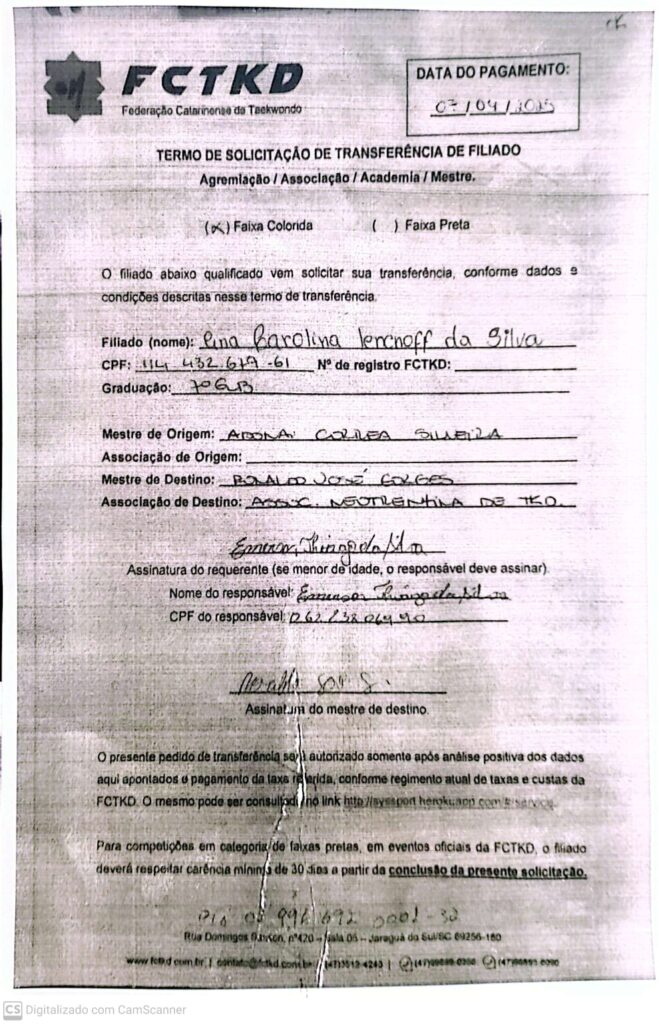 FCTKD
Federação Catarinense de Taekwondo
DATA DO PAGAMENTO:
07/04/2025
TERMO DE SOLICITAÇÃO DE TRANSFERÊNCIA DE FILIADO
Agremiação / Associação / Academia / Mestre.
(x) Faixa Colorida ( ) Faixa Preta
O filiado abaixo qualificado vem solicitar sua transferência, conforme dados e
condições descritas nesse termo de transferência.
Filiado (nome): Karolina da Silva
CPF: 114.432.679-61 Nº de registro FCTKD:
Graduação: 7º GUB
Mestre de Origem: ADONAI CORREA SILVEIRA
Associação de Origem:
Mestre de Destino: RONALDO JOSÉ GORGES
Associação de Destino: ASSOC. NEOTRENTINA DE TKD.
Emerson Thiago da Silva
Assinatura do requerente (se menor de idade, o responsável deve assinar)
Nome do responsável: Emerson Thiago da Silva
CPF do responsável:
Assinatura do mestre de destino.
O presente pedido de transferência será autorizado somente após análise positiva dos dados
aqui apontados e pagamento da taxa referida, conforme regimento atual de taxas e custas da
FCTKD. O mesmo pode ser consultado no link
Para competições em categoria de faixas pretas, em eventos oficiais da FCTKD, o filiado
deverá respeitar carência mínima de 30 dias a partir da conclusão da presente solicitação.
Rua Domingos nº420 – Sala 05 – Jaraguá do Sul/SC 89256-180
www.fctkd.com.br | contato@fctkd.com.br | (47)3512-4243 |
CS Digitalizado com CamScanner